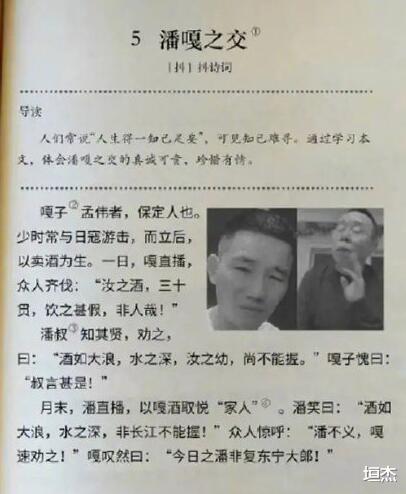 5 潘嘎之交①
[抖] 抖诗词
导读
人们常说“人生得一知己足矣”，可见知己难寻。通过学习本
文，体会潘嘎之交的真诚可贵，珍惜有情。
嘎子②孟伟者，保定人也。
少时常与日寇游击，而立后，
以卖酒为生。一日，嘎直播，
众人齐伐：“汝之酒，三十
贯，饮之甚假，非人哉！”
潘叔③知其贤，劝之，
曰：“酒如大浪，水之深，汝之幼，尚不能握。”嘎子愧曰：
“叔言甚是！”
月末，潘直播，以嘎酒取悦“家人”④。潘笑曰：“酒如
大浪，水之深，非长江不能握！”众人惊呼：“潘不义，嘎
速劝之！”嘎叹然曰：“今日之潘非复东宁大郎！”
垣杰